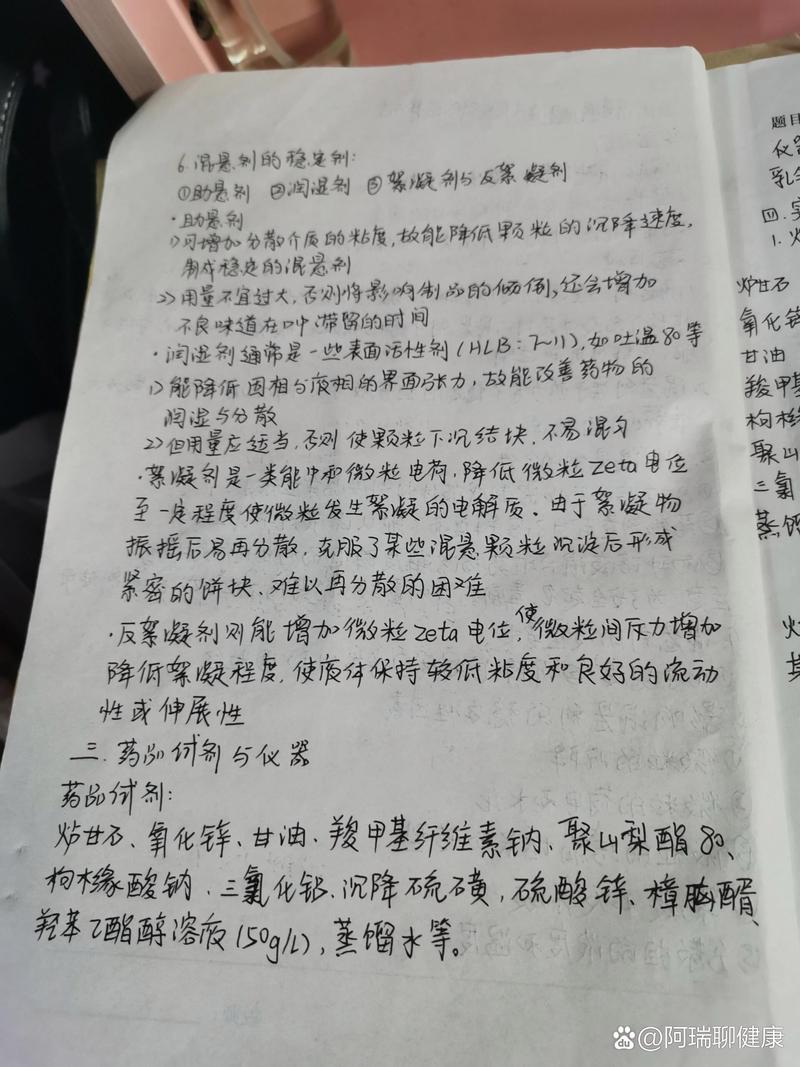 6.混悬剂的稳定剂:
①助悬剂 ②润湿剂 ③絮凝剂与反絮凝剂
·助悬剂
1)可增加分散介质的粘度,故能降低颗粒的沉降速度,
制成稳定的混悬剂
2)用量不宜过大,否则将影响制品的倾倒,还会增加
不良味道在口中滞留的时间
·润湿剂通常是一些表面活性剂(HLB:7~11),如吐温80等
1)能降低固相与液相的界面张力,故能改善药物的
润湿与分散
2)但用量应适当,否则使颗粒下沉结块,不易混匀
·絮凝剂是一类能中和微粒电荷,降低微粒zeta电位
至一定程度使微粒发生絮凝的电解质。由于絮凝物
振摇后易再分散,克服了某些混悬颗粒沉淀后形成
紧密的饼块、难以再分散的困难
·反絮凝剂则能增加微粒zeta电位,使微粒间斥力增加
降低絮凝程度,使液体保持较低粘度和良好的流动
性或伸展性
三.药品试剂与仪器
药品试剂:
炉甘石、氧化锌、甘油、羧甲基纤维素钠、聚山梨酯80、
枸橼酸钠、三氯化铝、沉降硫磺,硫酸锌、樟脑醑、
羟苯乙酯醇溶液(50g/L),蒸馏水等。
题目
仪器
四.实
1.炉
炉甘石
氧化锌
甘油
羧甲基
枸橼
聚山
三氯
蒸馏
@阿瑞聊健康